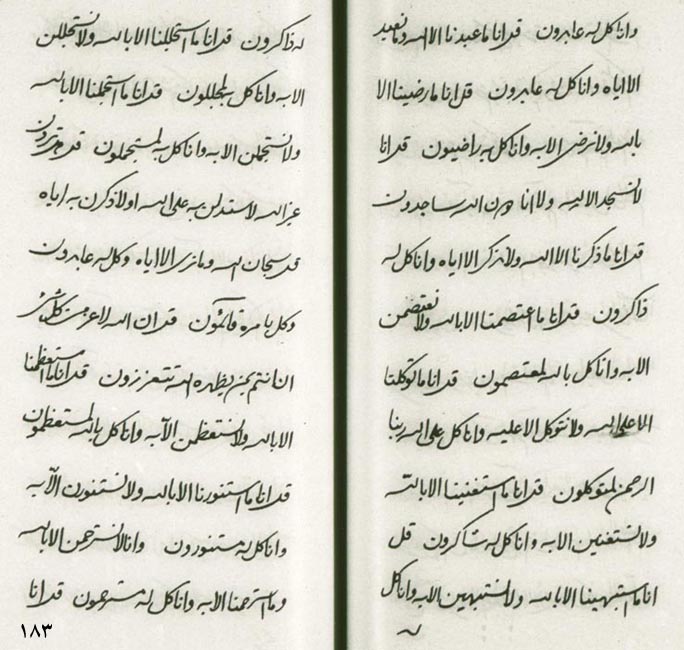 وانا كل له عابدون قل انا ما عبدنا الا الله وما نعبد
الا اياه وانا كل له عابدون قل انا ما رضينا الا
بالله ولا نرضى الا به وانا كل به راضيون قل انا
لا نسجد الا لله ولا انا دون الله ساجدون
قل انا ما ذكرنا الا الله ولا نذكر الا اياه وانا كل له
ذاكرون قل انا ما اعتصمنا الا بالله ولا نعتصمن
الا به وانا كل بالله لمعتصمون قل انا ما توكلنا
الا على الله ولا نتوكل الا عليه وانا كل على الله ربنا
الرحمن لمتوكلون قل انا ما استغنينا الا بالله
ولا نستغنين الا به وانا كل له شاكرون قل
انا ما استبهينا الا بالله ولا نستبهين الا به وانا كل
له ذاكرون قل انا ما استجللنا الا بالله ولا نستجللن
الا به وانا كل به لمجللون قل انا ما استجملنا الا بالله
ولا نستجملن الا به وانا كل به لمستجملون قل
غير الله لا ستدلن به على الله او لاذكرن به اياه
قل سبحان الله وما نرى الا اياه وكل له عابدون
وكل بامره قائمون قل ان الله لاعز من كل شئ
ان انتم بمن يظهره الله تتعززون قل انا ما استعظمنا
الا بالله ولا نستعظمن الا به وانا كل بالله لمستعظمون
قل انا ما استنورنا الا بالله ولا نستنورن الا به
وانا كل به مستنورون وانا لا نسترحمن الا بالله
وما استرحمنا الا به وانا كل له مسترحمون قل انا
١٨٣